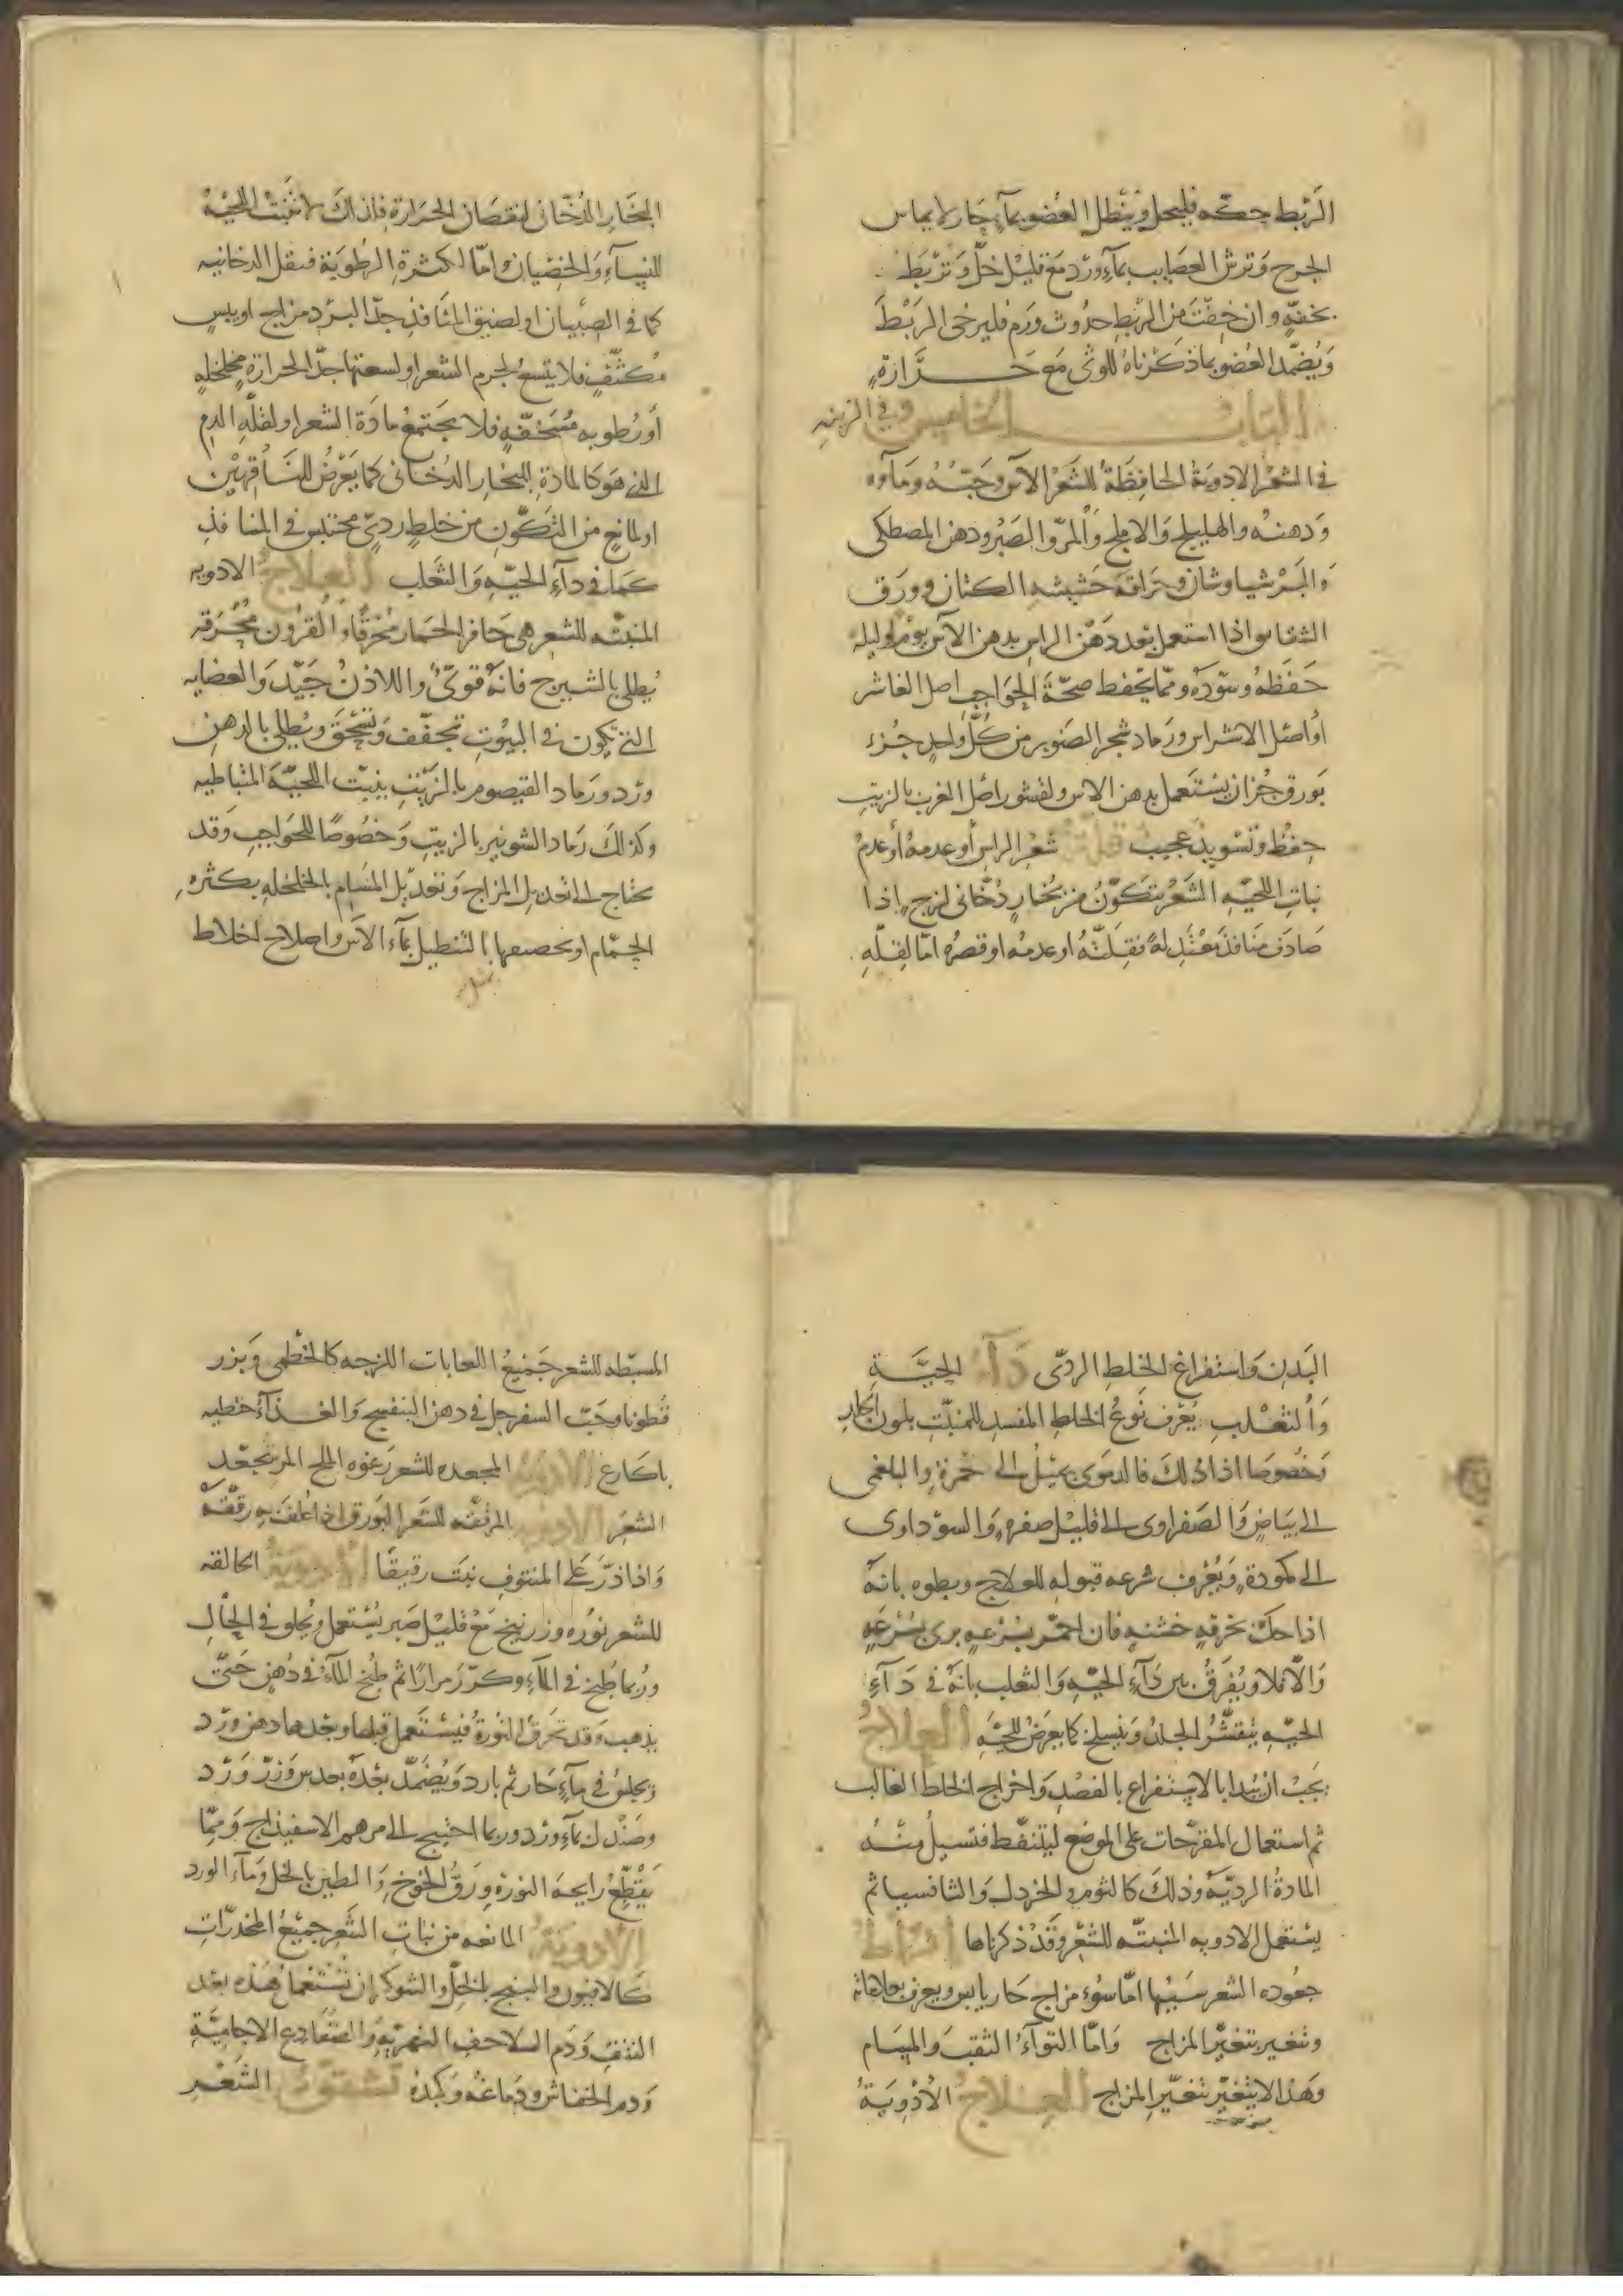 الربط حكّه فليحل وينطل العضو بماء حار لا يماس
الجرح وترش العصايب بماء ورد مع قليل خلّ وتربط
بخفّه وان خفت من الربط حدوث ورم فليرخى الربط
ويضمّد العضو بما ذكرناه للوثى مع حرارة
الباب الخامس في الزينه
في الشعر الادوية الحافظة للشعر الآس وحبّه وماوه
ودهنه والهليلج والاملج والمرّ والصبر ودهن المصطكى
والبرشياوشان وحراقة حشيشه الكتان وورق
الشقايق اذا استعمل بعد دهن الراس بدهن الآس يوم وليلة
حفظه وسوّده ومما يحفظ صحّة الحواجب اصل الغاشر
أو اصل الاشراس ورماد شجر الصنوبر من كلّ واحد جزء
بورق جزان يستعمل بدهن الاس ولقشور اصل الغرب بالزيت
حفظ وتسويد عجيب قلة شعر الراس أو عدمه أو عدم
نبات اللحيه الشعر يتكوّن من بخار دخّانى لزج اذا
صادف منافذ معتدلة فقلّته او عدمه او قصره امّا لقلّه
البخار الدخّانى لنقصان الحرارة فلذلك لا تنبت اللحية
للنساء والخصيان وامّا لكثرة الرطوبة فيقل الدخانيه
كما في الصبيان او لضيق المنافذ جدّا لبرد مزاج او يبس
مكثّف فلا يتسع لجرم الشعر او لسعتها جدّا لحرارة مخلخله
أو رطوبه مسخفّه فلا يجتمع مادة الشعر او لقلّه الدم
الذي هو كالمادة للبخار الدخانى كما يعرض للناقهين
او لمانع من التكوّن من خلط رديّ محتبس في المنافذ
كما في داء الحيّه والثعلب العلاج الادويه
المنبتّه للشعر هى حافر الحمار محرقًا والقرون محرقه
يطلى بالشيرج فانه قوىّ واللاذن جيّد والعضايه
التي تكون في البيوت تجفّف وتسحق ويطلى بالدهن
ورد ورماد القيصوم بالزيت ينبت اللحية المتباطيه
وكذلك رماد الشونيز بالزيت وخصوصًا للحواجب وقد
يحتاج الى تعديل المزاج وتعديل المسام بالخلخله بكثره
الحمّام او تخصيفها بالتنطيل بماء الآس واصلاح اخلاط
البدن واستفراغ الخلط الردّى داء الحيّة
والثعلب يعرف نوع الخلط المفسد للمنبت بلون الجلد
وخصوصا اذا دلك فالدموى يميل الى حمرة والبلغمى
الى بياض والصفراوى الى قليل صفره والسوداوى
الى كمودة ويعرف سرعه قبوله للعلاج وبطوه بانه
اذا حكّ بخرقه خشنه فان احمر بسرعه برى بسرعه
والّا فلا ويفرق بين داء الحيّه والثعلب بانه في داء
الحيّه يتقشّر الجلد وينسلخ كما يعرض للحيّه العلاج
يجب ان يبدا بالاستفراغ بالفصد واخراج الخلط الغالب
ثم استعمال المقرّحات على الموضع ليتنفّط فتسيل منه
المادة الرديّه وذلك كالثوم والخردل والثافسيا ثم
يستعمل الادويه المنبتّه للشعر وقد ذكرناها افراط
جعوده الشعر سببها امّا سوء مزاج حار يابس ويعرف بعلاماته
وتغير بتغيّر المزاج وامّا التواء الثقب والمسام
وهذا لا يتغيّر بتغيّر المزاج العلاج الأدوية
المسبّطه للشعر جميع اللعابات اللزجه كالخطمى وبزر
قطونا وحبّ السفرجل في دهن البنفسج والغذاء حنطيه
باكارع الادوية المجعده للشعر رغوه الملح المر تجعّد
الشعر الادوية المرققّه للشعر البورق اذا غلف به رقّقه
واذا ذرّ على المنتوف نبت رقيقًا الادوية الحالقه
للشعر نوره وزرنيخ مع قليل صبر يستعمل ويحلق في الحال
وربما طبخ في الماء وكرّر مرارًا ثم طبخ الماء في دهن حتّى
يذهب وقد تحرق النورة فيستعمل قبلها وبعدها دهن ورد
ويجلس في ماء حار ثم بارد ويضمّد بعده بعدس وزرّ ورد
وصندل بماء ورد وربما احتيج الى مرهم الاسفيذاج وممّا
يقطع رايحه النوره ورق الخوخ والطين بالخل وماء الورد
الأدوية المانعه من نبات الشعر جميع المخدّرات
كالافيون والبنج بالخلّ والشوكران تستعمل هذه بعد
النتف ودم السلاحف النهريّه والضفادع الاجاميّة
ودم الخفاش ودماغه وكبده تشقّق الشعر